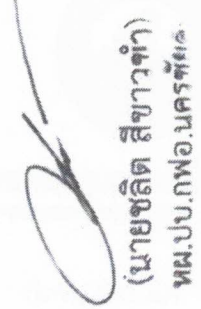 (นายชลิต สีขาวคำ)
หผ.ปบ.กฟอ.นครชัย